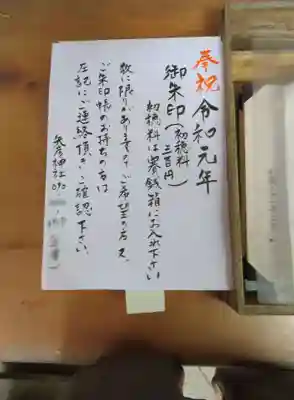 奉祝令和元年
御朱印(初穂料三百円)
初穂料は賽銭箱にお入れ下さい
数に限りがありますのでご希望の方又、
ご朱印帳のお持ちの方は
左記にご連絡頂きご確認下さい。
矢彦神社 090